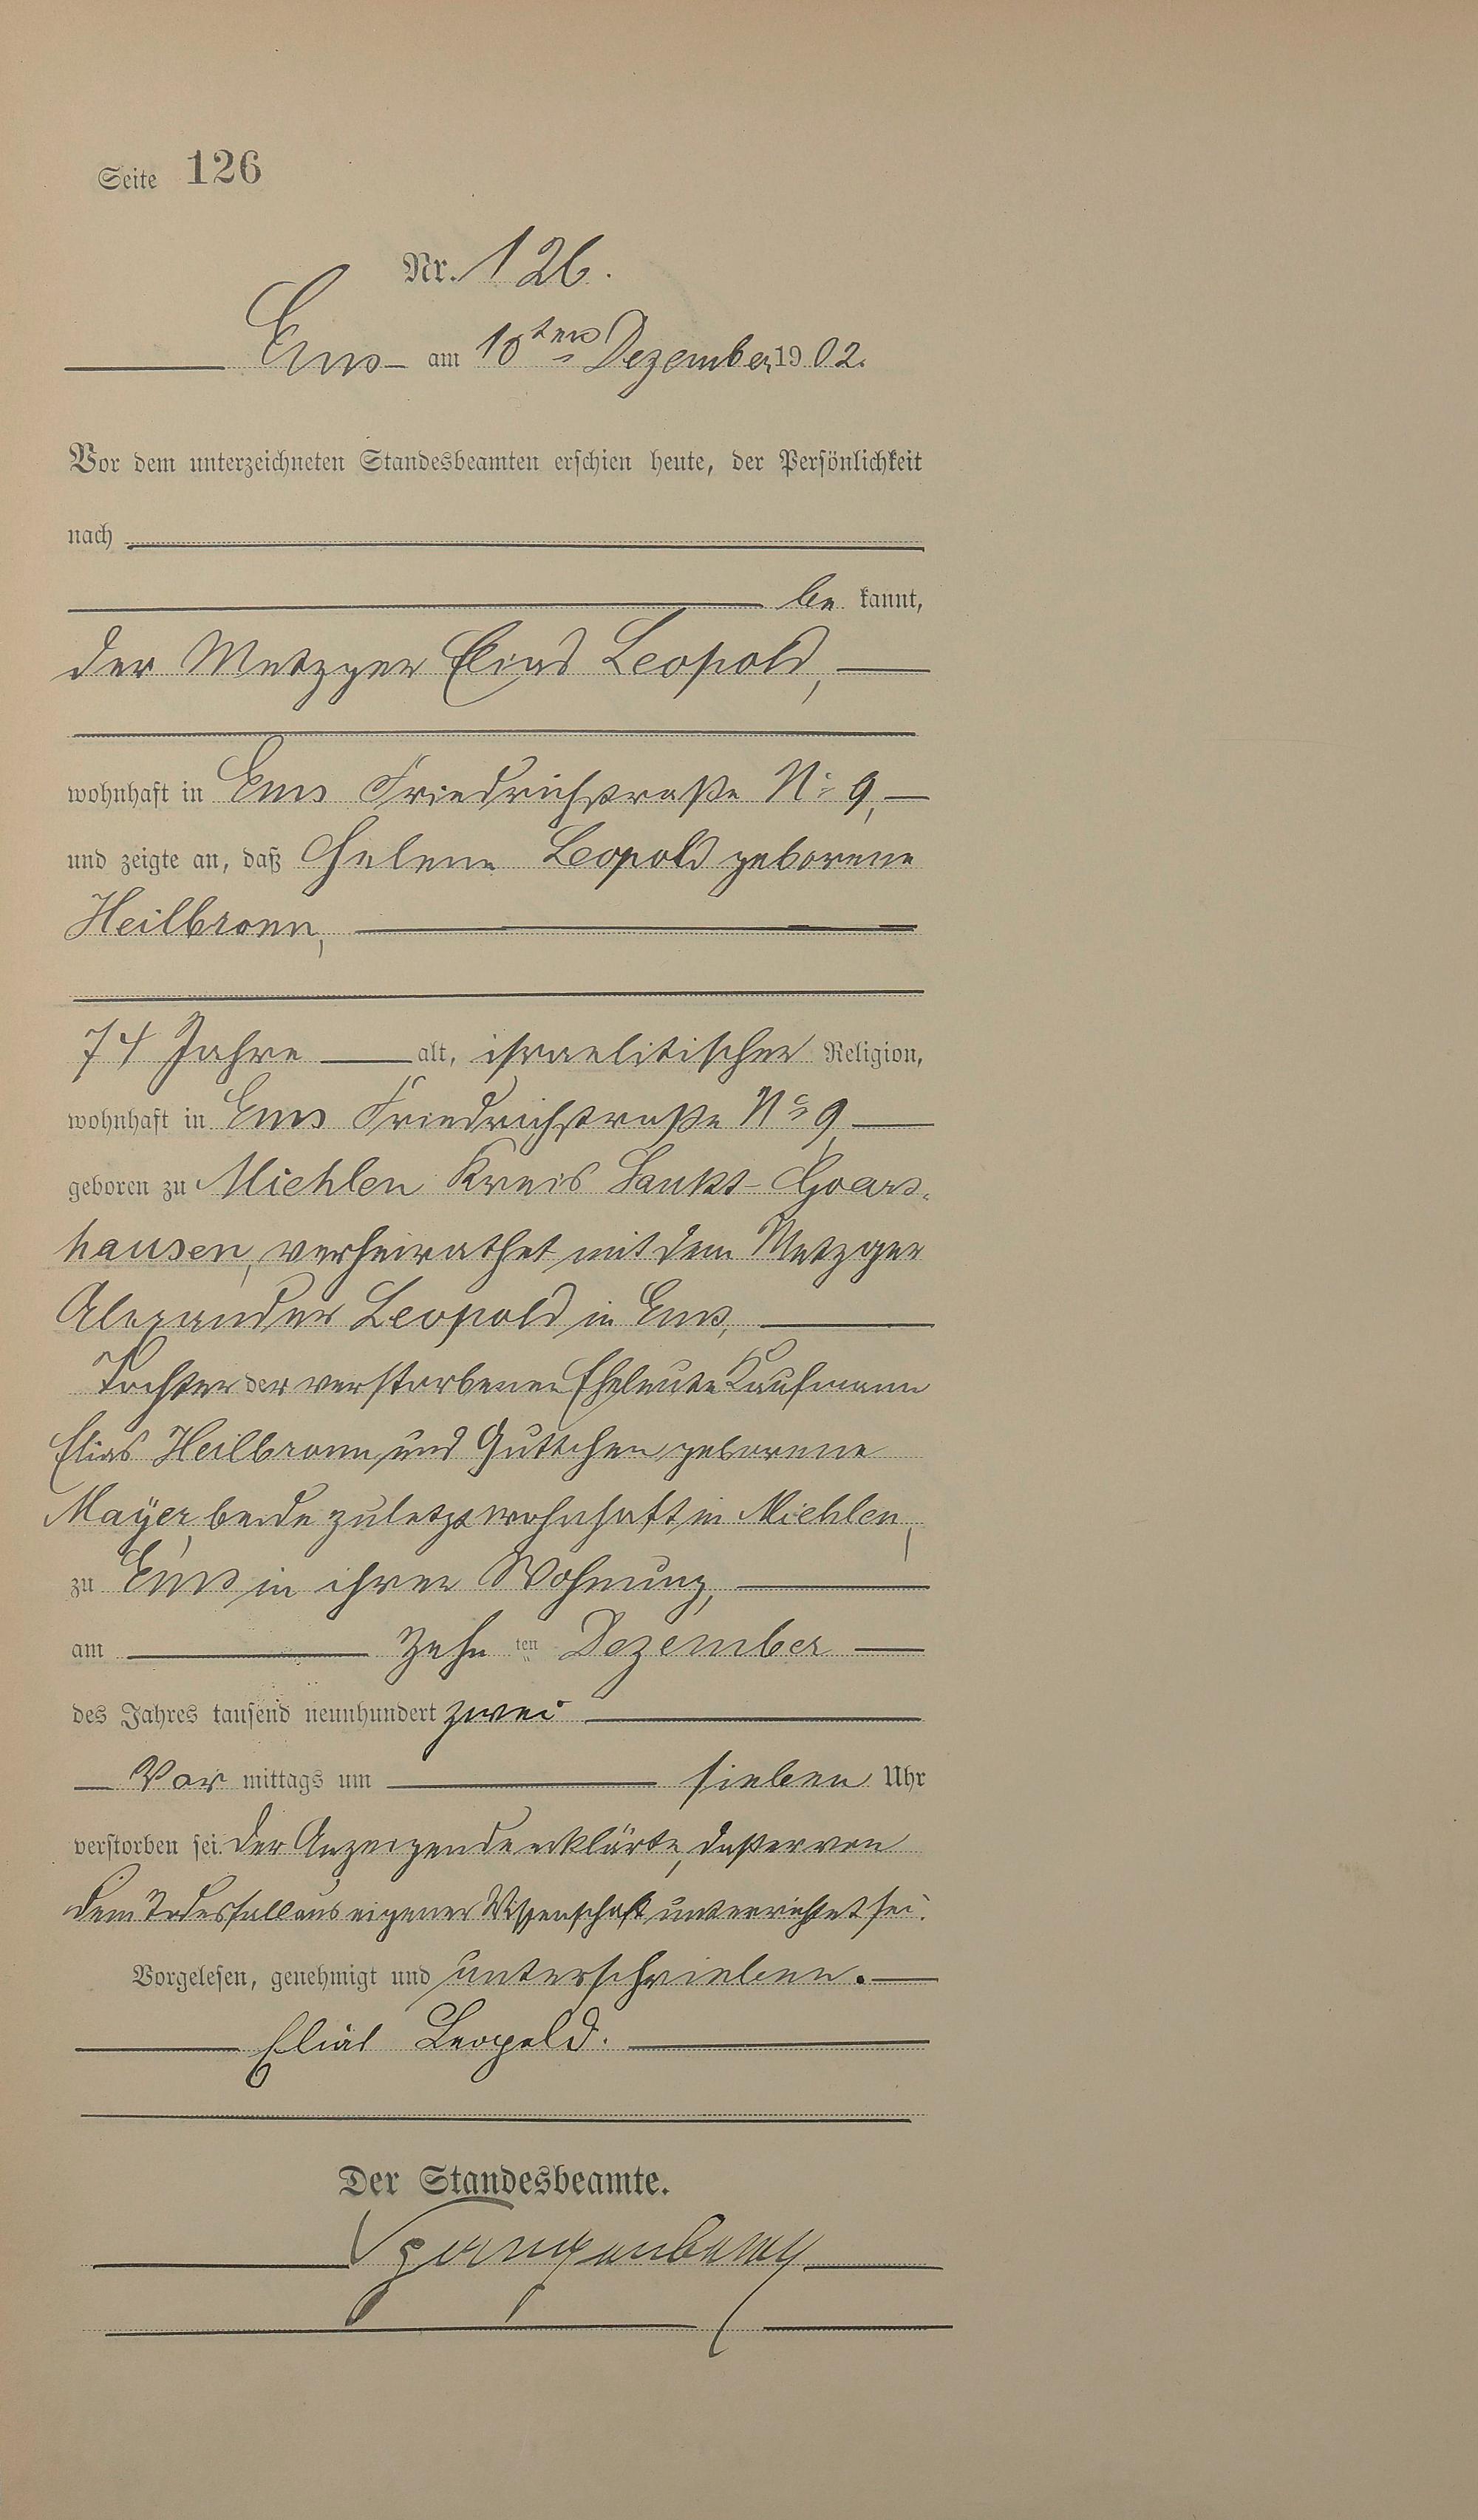 Seite 126
Nr. 126.
Ems am 10ten Dezember 1902.
Vor dem unterzeichneten Standesbeamten erschien heute, der Persönlichkeit
nach
be kannt,
der Metzger Elias Leopold,
wohnhaft in Ems Friedrichstraße No 9,
und zeigte an, daß Helene Leopold geborene
Heilbronn,
74 Jahre alt, israelitischer Religion,
wohnhaft in Ems Friedrichstraße No 9
geboren zu Miehlen Kreis Sankt-Goars-
hausen, verheirathet mit dem Metzger
Alexander Leopold in Ems,
Tochter der verstorbenen Eheleute Kaufmann
Elias Heilbronn und Guttchen geborene
Mayer, beide zuletzt wohnhaft in Miehlen,
zu Ems in ihrer Wohnung,
am zehn ten Dezember
des Jahres tausend neunhundert zwei
Vor mittags um sieben Uhr
verstorben sei. Der Anzeigende erklärte, daß er von
dem Todesfall aus eigener Wissenschaft unterrichtet sei.
Vorgelesen, genehmigt und unterschrieben.
Elias Leopold.
Der Standesbeamte.